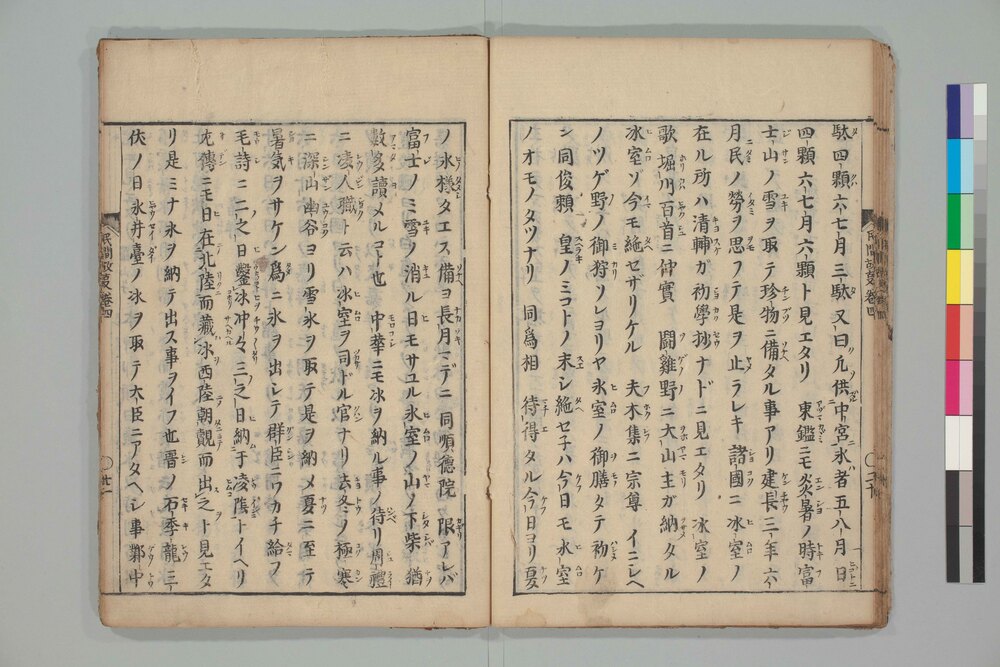 駄四顆六七月三駄又曰凡供中宮氷者五八月日
四顆六七月六顆ト見エタリ 東鑑ニモ炎暑ノ時富
士山ノ雪ヲ取テ珍物ニ備タル事アリ建長三年六
月民ノ勞ヲ思フテ是ヲ止ラレキ 諸國ニ氷室ノ
在ル所ハ清輔ガ初學抄ナドニ見エタリ 氷室ノ
歌堀川百首ニ仲實 鬪雞野ニ大山主ガ納タル
氷室ゾ今モ絶セザリケル 夫木集ニ宗尊 イニシヘ
ノツゲ野ノ御狩ソレヨリヤ氷室ノ御膳タテ初ケ
ン同俊頼 皇ノミコトノ末シ絶セ子ハ今日モ氷室
ノオモノタツナリ 同為相 待得タル今日ヨリ夏
民間故事 卷四
〇二十
ノ氷様タエス備ヨ長月マデニ 同順德院 限アレバ
富士ノミ雪ノ消ル日モサユル氷室ノ山ノ下柴 猶
數多讀メルコト也 中華ニモ氷ヲ納ル事ノ侍リ周禮
ニ凌人職ト云ハ氷室ヲ司ドル官ナリ去冬ノ極寒
ニ深山幽谷ヨリ雪氷ヲ取テ是ヲ納メ夏ニ至テ
暑気ヲサケン為ニ氷ヲ出シテ群臣ニワカチ給フ
毛詩ニ二之日鑿氷冲々三之日納于凌陰トイヘリ
左傳ニモ日在北陸而藏氷西陸朝覿而出之ト見エタ
リ是ミナ氷ヲ納テ出ス事ヲイフ也晋ノ石季龍三
伏ノ日氷井臺ノ氷ヲ取テ大臣ニアタヘシ事鄴中
民間故事 卷四
〇廿一